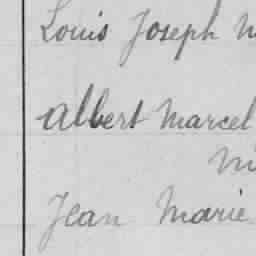 Louis Joseph
Albert Marcel
Jean Marie